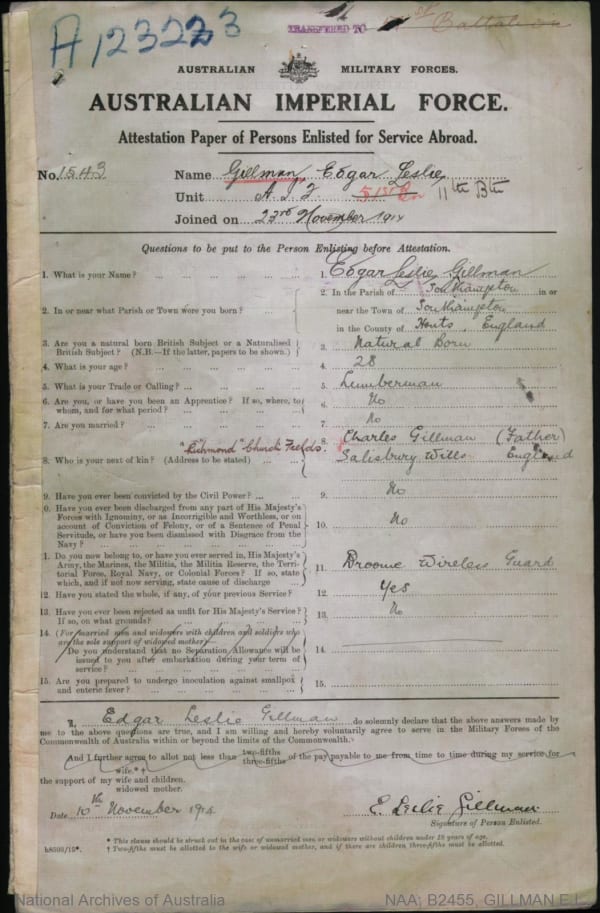 A123223
TRANSFERRED TO 51st Battalion
AUSTRALIAN MILITARY FORCES.
AUSTRALIAN IMPERIAL FORCE.
Attestation Paper of Persons Enlisted for Service Abroad.
No. 1543 Name Gillman Edgar Leslie
Unit A I F 51st Bn 11th Bth
Joined on 23rd November 1914
Questions to be put to the Person Enlisting before Attestation.
1. What is your Name? ... 1. Edgar Leslie Gillman
2. In or near what Parish or Town were you born? ... 2. In the Parish of Southampton in or
near the Town of Southampton
in the County of Hants, England
3. Are you a natural born British Subject or a Naturalised
British Subject? (N.B.—If the latter, papers to be shown.) 3. Natural Born
4. What is your age? ... 4. 28
5. What is your Trade or Calling? ... 5. Lumberman
6. Are you, or have you been an Apprentice? If so, where, to
whom, and for what period? ... 6. No
7. Are you married? ... 7. No
"Richmond" Church Fields.
8. Who is your next of kin? (Address to be stated) ... 8. Charles Gillman (Father)
Salisbury Wilts England
9. Have you ever been convicted by the Civil Power? ... 9. No
0. Have you ever been discharged from any part of His Majesty's
Forces with Ignominy, or as Incorrigible and Worthless, or on
account of Conviction of Felony, or of a Sentence of Penal
Servitude, or have you been dismissed with Disgrace from the
Navy? ... 10. No
1. Do you now belong to, or have you ever served in, His Majesty's
Army, the Marines, the Militia, the Militia Reserve, the Terri-
torial Force, Royal Navy, or Colonial Forces? If so, state
which, and if not now serving, state cause of discharge 11. Broome Wireless Guard
12. Have you stated the whole, if any, of your previous Service? 12. Yes
13. Have you ever been rejected as unfit for His Majesty's Service?
If so, on what grounds? ... 13. No
14. (For married men and widowers with children and soldiers who
are the sole support of widowed mother)
Do you understand that no Separation Allowance will be
issued to you after embarkation during your term of
service? ... 14.
15. Are you prepared to undergo inoculation against smallpox
and enteric fever? ... 15.
I, Edgar Leslie Gillman do solemnly declare that the above answers made by
me to the above questions are true, and I am willing and hereby voluntarily agree to serve in the Military Forces of the
Commonwealth of Australia within or beyond the limits of the Commonwealth.
And I further agree to allot not less than two-fifths three-fifths of the pay payable to me from time to time during my service for
wife.*†
the support of my wife and children.
widowed mother.
Date 10th November 1914 E. Leslie Gillman
Signature of Person Enlisted.
* This clause should be struck out in the case of unmarried men or widowers without children under 18 years of age.
† Two-fifths must be allotted to the wife or widowed mother, and if there are children three-fifths must be allotted.
National Archives of Australia NAA: B2455, GILLMAN E L